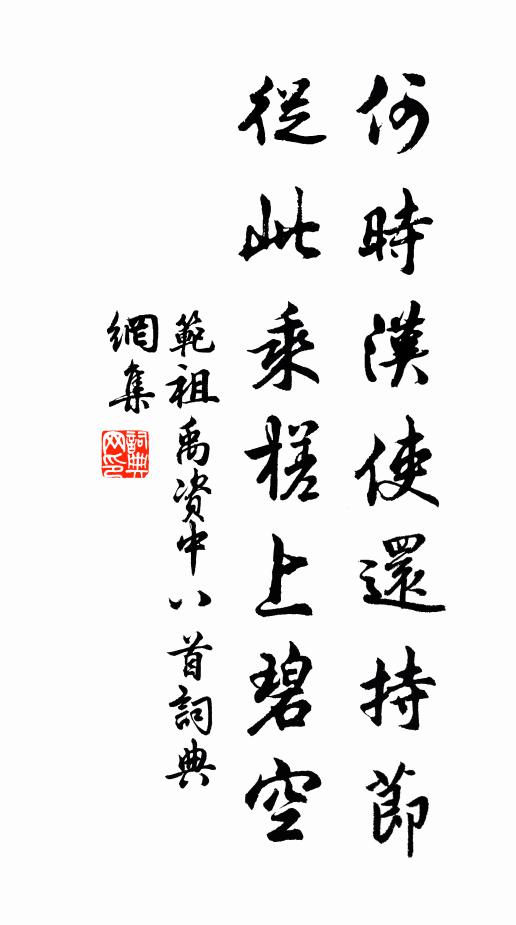 何時漢使還持節
從此乘槎上碧空
範祖禹資中八首詞典
網集
詞典网印